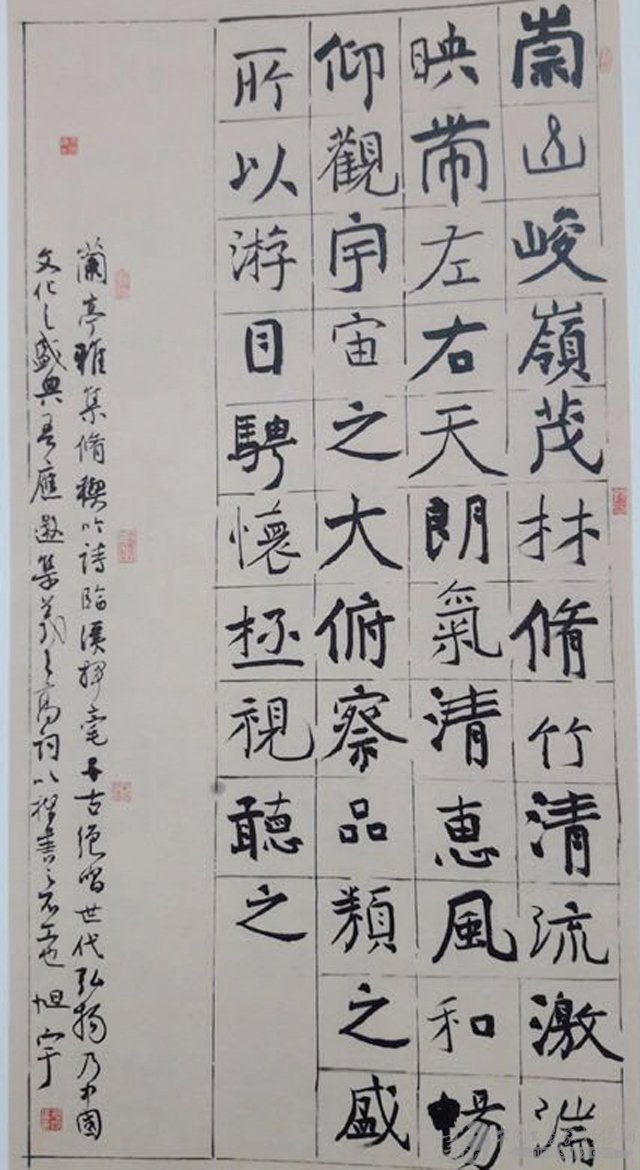 崇山峻嶺茂林脩竹清流激湍
映帶左右天朗氣清恵風和暢
仰觀宇宙之大俯察品類之盛
所以游目騁懷極視聽之
蘭亭雅集脩稧吟詩臨溪揮毫千古絕唱世代弘揚乃中國
文化之盛典吾應邀集羲之高詞以楷書之不工也 旭宇